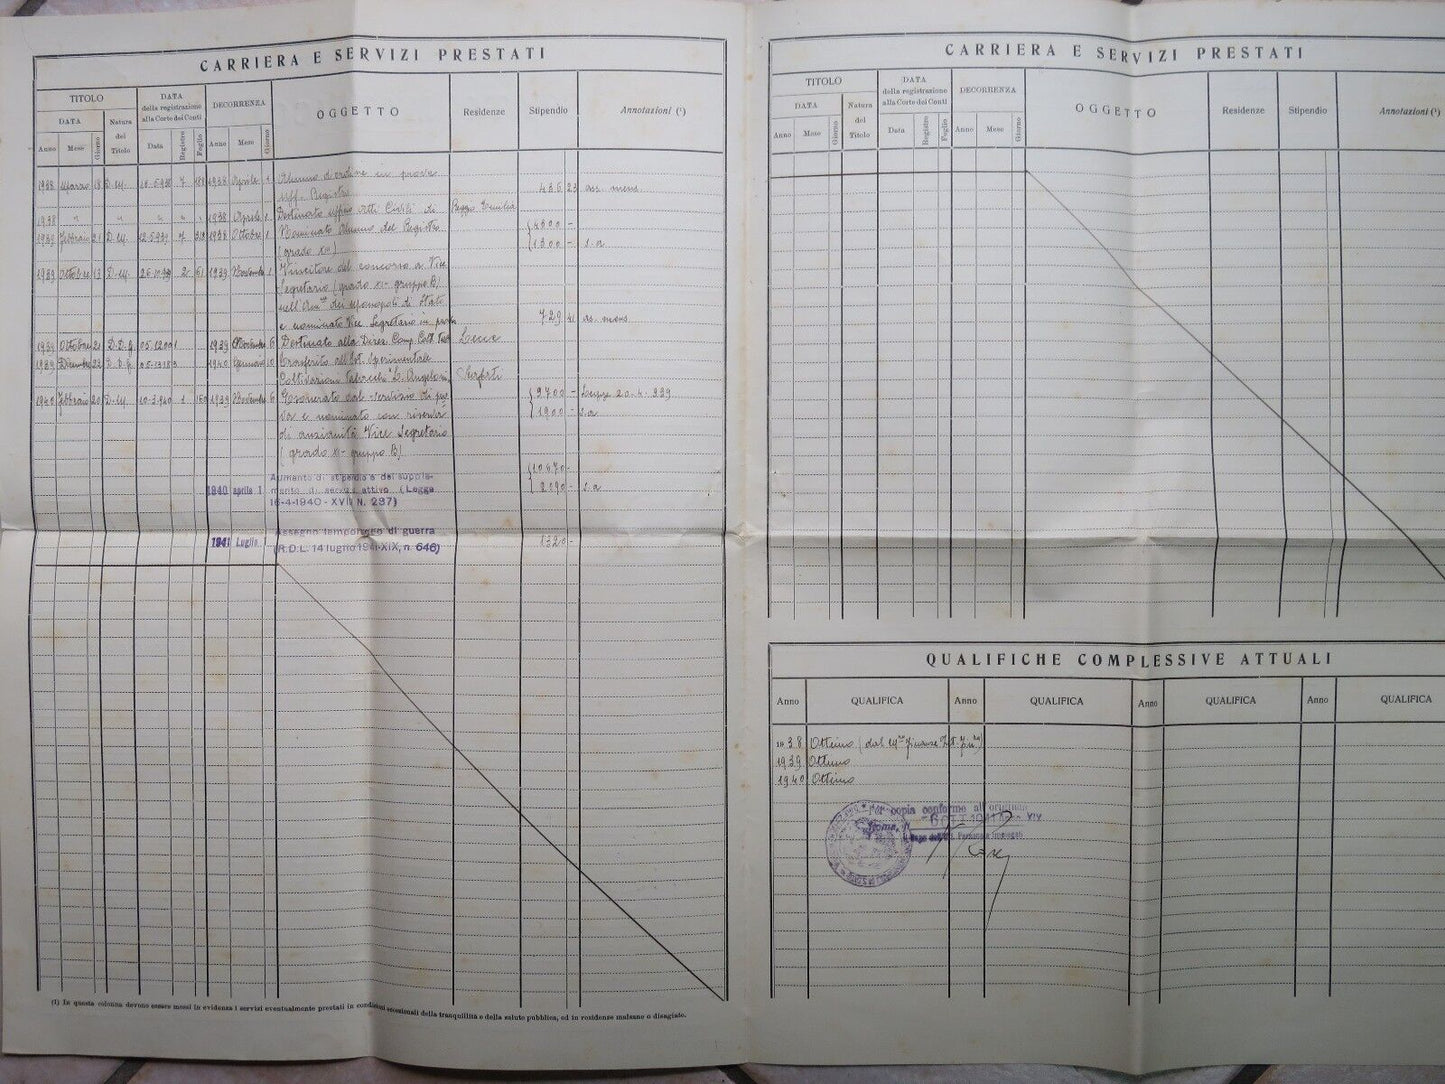 CARRIERA E SERVIZI PRESTATI
TITOLO
DATA della registrazione alla Corte dei Conti
DECORRENZA
OGGETTO
Residenze
Stipendio
Annotazioni (¹)
DATA
Natura del Titolo
Anno Mese Giorno
Data Registro Foglio
Anno Mese Giorno
1938 Marzo 18 D. M. 7 1938 Aprile 1 Alunno d'ordine in prova
Uff. Registro 436 23 as. mens.
1938 " " " " 1938 Aprile 1 Destinato ufficio Atti Civili di Reggio Emilia
1939 Febbraio 21 D. M. 7 1938 Ottobre 1 Nominato Alunno del Registro 4300 -
(grado XIII) 1300 - s. a
1939 Ottobre 13 D. M. 2 61 1939 Novembre 1 Vincitore del concorso a Vice
Segretario (grado XI - gruppo B)
nell'Amm.ne dei Monopoli di Stato
e nominato Vice Segretario in prova 729 41 as. mens.
1939 Ottobre 21 D. D. G. 05.12001 1939 Novembre 6 Destinato alla Direz. Comp. Colt. Tab. Lecce
1939 Dicembre 22 D. D. G. 1940 Gennaio 10 Trasferito all'Ist. Sperimentale
Coltivazioni Tabacchi "L. Angeloni" Scafati
1940 Febbraio 20 D. M. 10-3-940 1 150 1939 Novembre 6 Esonerato dal servizio di pro- 9700 - Legge 20-4-939
va e nominato con riserva 1900 - s. a
di anzianità Vice Segretario
(grado XI - gruppo B)
10670 -
1940 aprile 1 Aumento di stipendio e del supplemento di servizio attivo (Legge 2090 - s. a
16-4-1940 - XVIII N. 237)
1941 Luglio 1 Assegno temporaneo di guerra
(R.D.L. 14 lugno 1941-XIX, n. 646) 1320 -
(1) In questa colonna devono essere messi in evidenza i servizi eventualmente prestati in condizioni eccezionali della tranquillità e della salute pubblica, ed in residenze malsane o disagiate.
CARRIERA E SERVIZI PRESTATI
TITOLO
DATA della registrazione alla Corte dei Conti
DECORRENZA
OGGETTO
Residenze
Stipendio
Annotazioni (¹)
DATA
Natura del Titolo
Anno Mese Giorno
Data Registro Foglio
Anno Mese Giorno
QUALIFICHE COMPLESSIVE ATTUALI
Anno QUALIFICA Anno QUALIFICA Anno QUALIFICA Anno QUALIFICA
1938 Ottimo
1939 Ottimo
1940 Ottimo
Per copia conforme all'originale
Roma, li